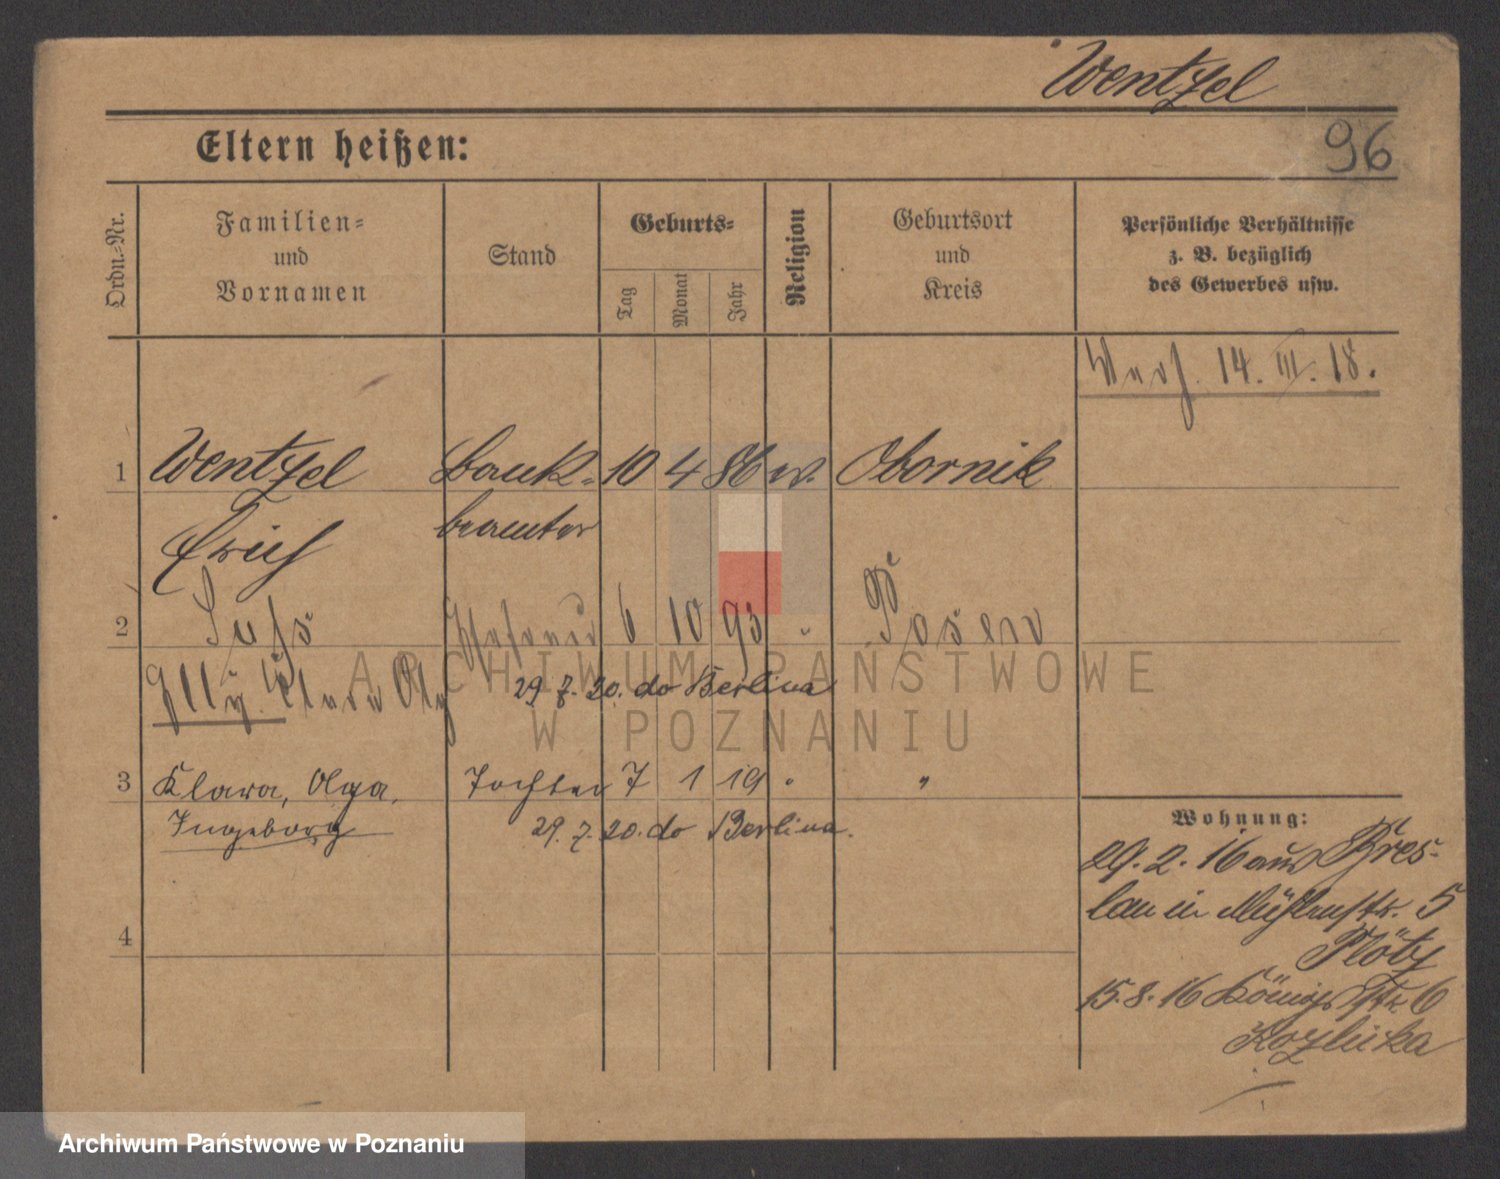 Wentzel
Eltern heißen:
96
Ordn.-Nr.
Familien-
und
Vornamen
Stand
Geburts-
Tag
Monat
Jahr
Religion
Geburtsort
und
Kreis
Persönliche Verhältnisse
z. B. bezüglich
des Gewerbes usw.
14. III. 18.
1 Wentzel Bank- 10 4 86 Obornik
Erich beamter
2 6 10 93 Posen
Elly Clara
29.7.20. do Berlina
ARCHIWUM PAŃSTWOWE
W POZNANIU
3 Klara, Olga, Tochter 7 1 19 "
Ingeborg 29.7.20. do Berlina.
4
Wohnung:
29.2.16 aus Bres-
lau in Mühlenstr. 5
Plötz
15.8.16 Königstr. 6
Kozlicka
Archiwum Państwowe w Poznaniu